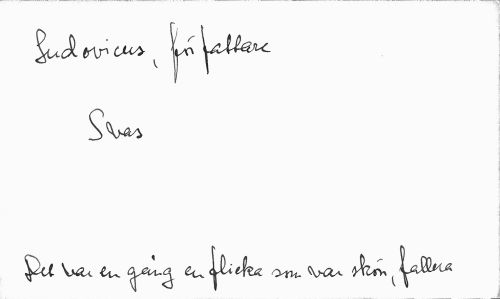 Ludovicus, författare
Svas
Det var en gång en flicka som var skön, fallera